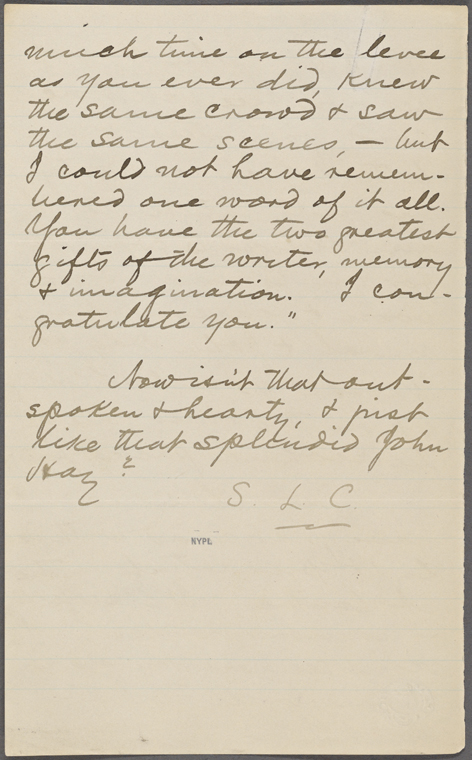 much time on the levee
as you ever did, knew
the same crowd & saw
the same scenes, — but
I could not have remem-
bered one word of it all.
You have the two greatest
gifts of the writer, memory
& imagination. I con-
gratulate you."
Now isn't that out-
spoken & hearty, & just
like that splendid John
Hay?
S. L. C.
NYPL